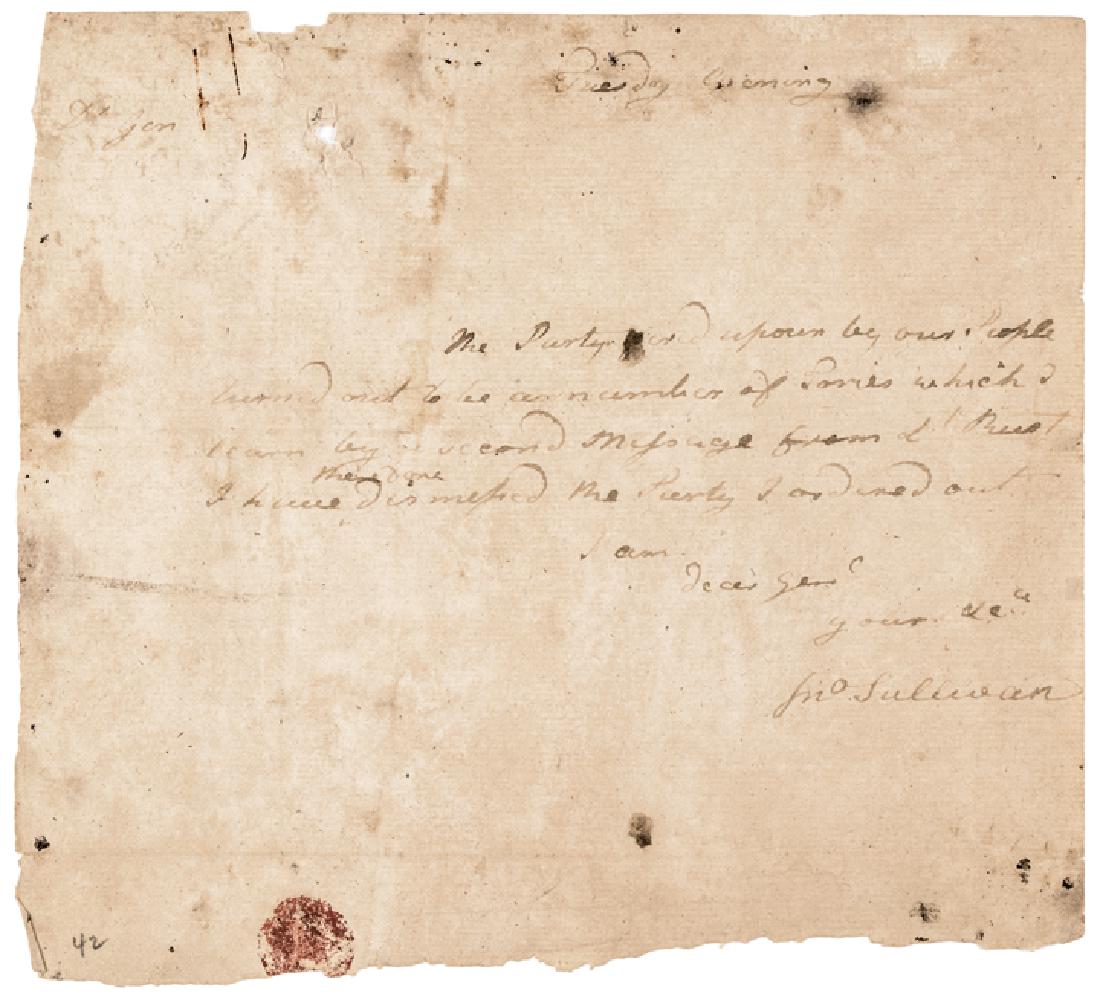 Tuesday Evening
Dr gen
The Party fired upon by our People
turn'd out to be a number of Tories which I
learn by a second Message from Lt Rust
therefore
I have dismessed the Party I ordered out
I am
Dear Genl
your &ca
Jno Sullivan
42